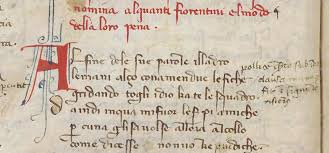 nomina alquanti fiorentini el modo
della loro pena.
Al fine dele sue parole illadro
lemani alço conamendue lefiche
gridando togli idio kate lesquadro
da indi inqua mifuor leserpi amiche
per cuna glisavolse allora alcollo
come dicesse nonvo ke piu diche